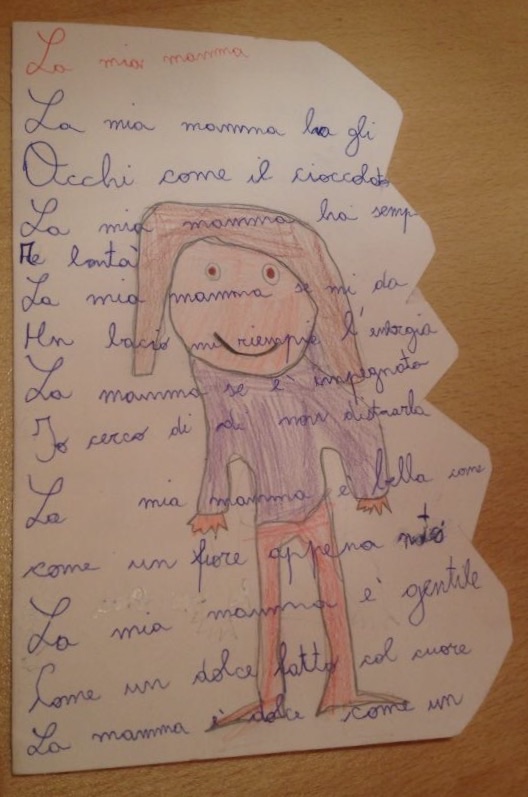 La mia mamma
La mia mamma ha gli
Occhi come il cioccolato
La mia mamma ha semp
Re bontà
La mia mamma se mi da
Un bacio mi riempie l'energia
La mamma se è impegnata
Io cerco di di non distrarla
La mia mamma è bella come
come un fiore appena nato
La mia mamma è gentile
Come un dolce fatto col cuore
La mamma è dolce come un